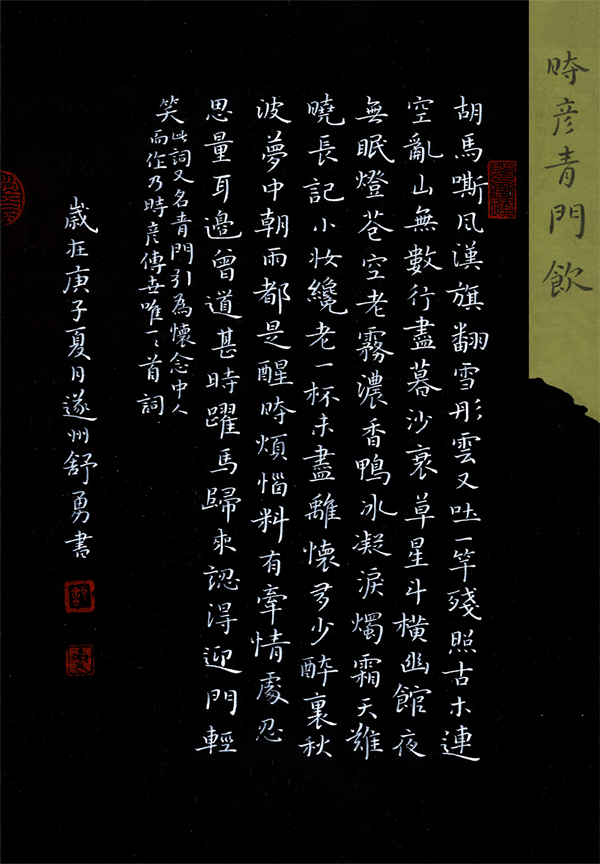 時彥青門飲
胡馬嘶風漢旗翻雪彤雲又吐一竿殘照古木連
空亂山無數行盡暮沙衰草星斗橫幽館夜
無眠燈花空老霧濃香鴨冰凝淚燭霜天難
曉長記小妝纔老一杯未盡離懷多少醉裏秋
波夢中朝雨都是醒時煩惱料有牽情處忍
思量耳邊曾道甚時躍馬歸來認得迎門輕
笑
此詞又名青門引為懷念中人
而作乃時彥傳世唯一一首詞
歲在庚子夏月遂州舒勇書